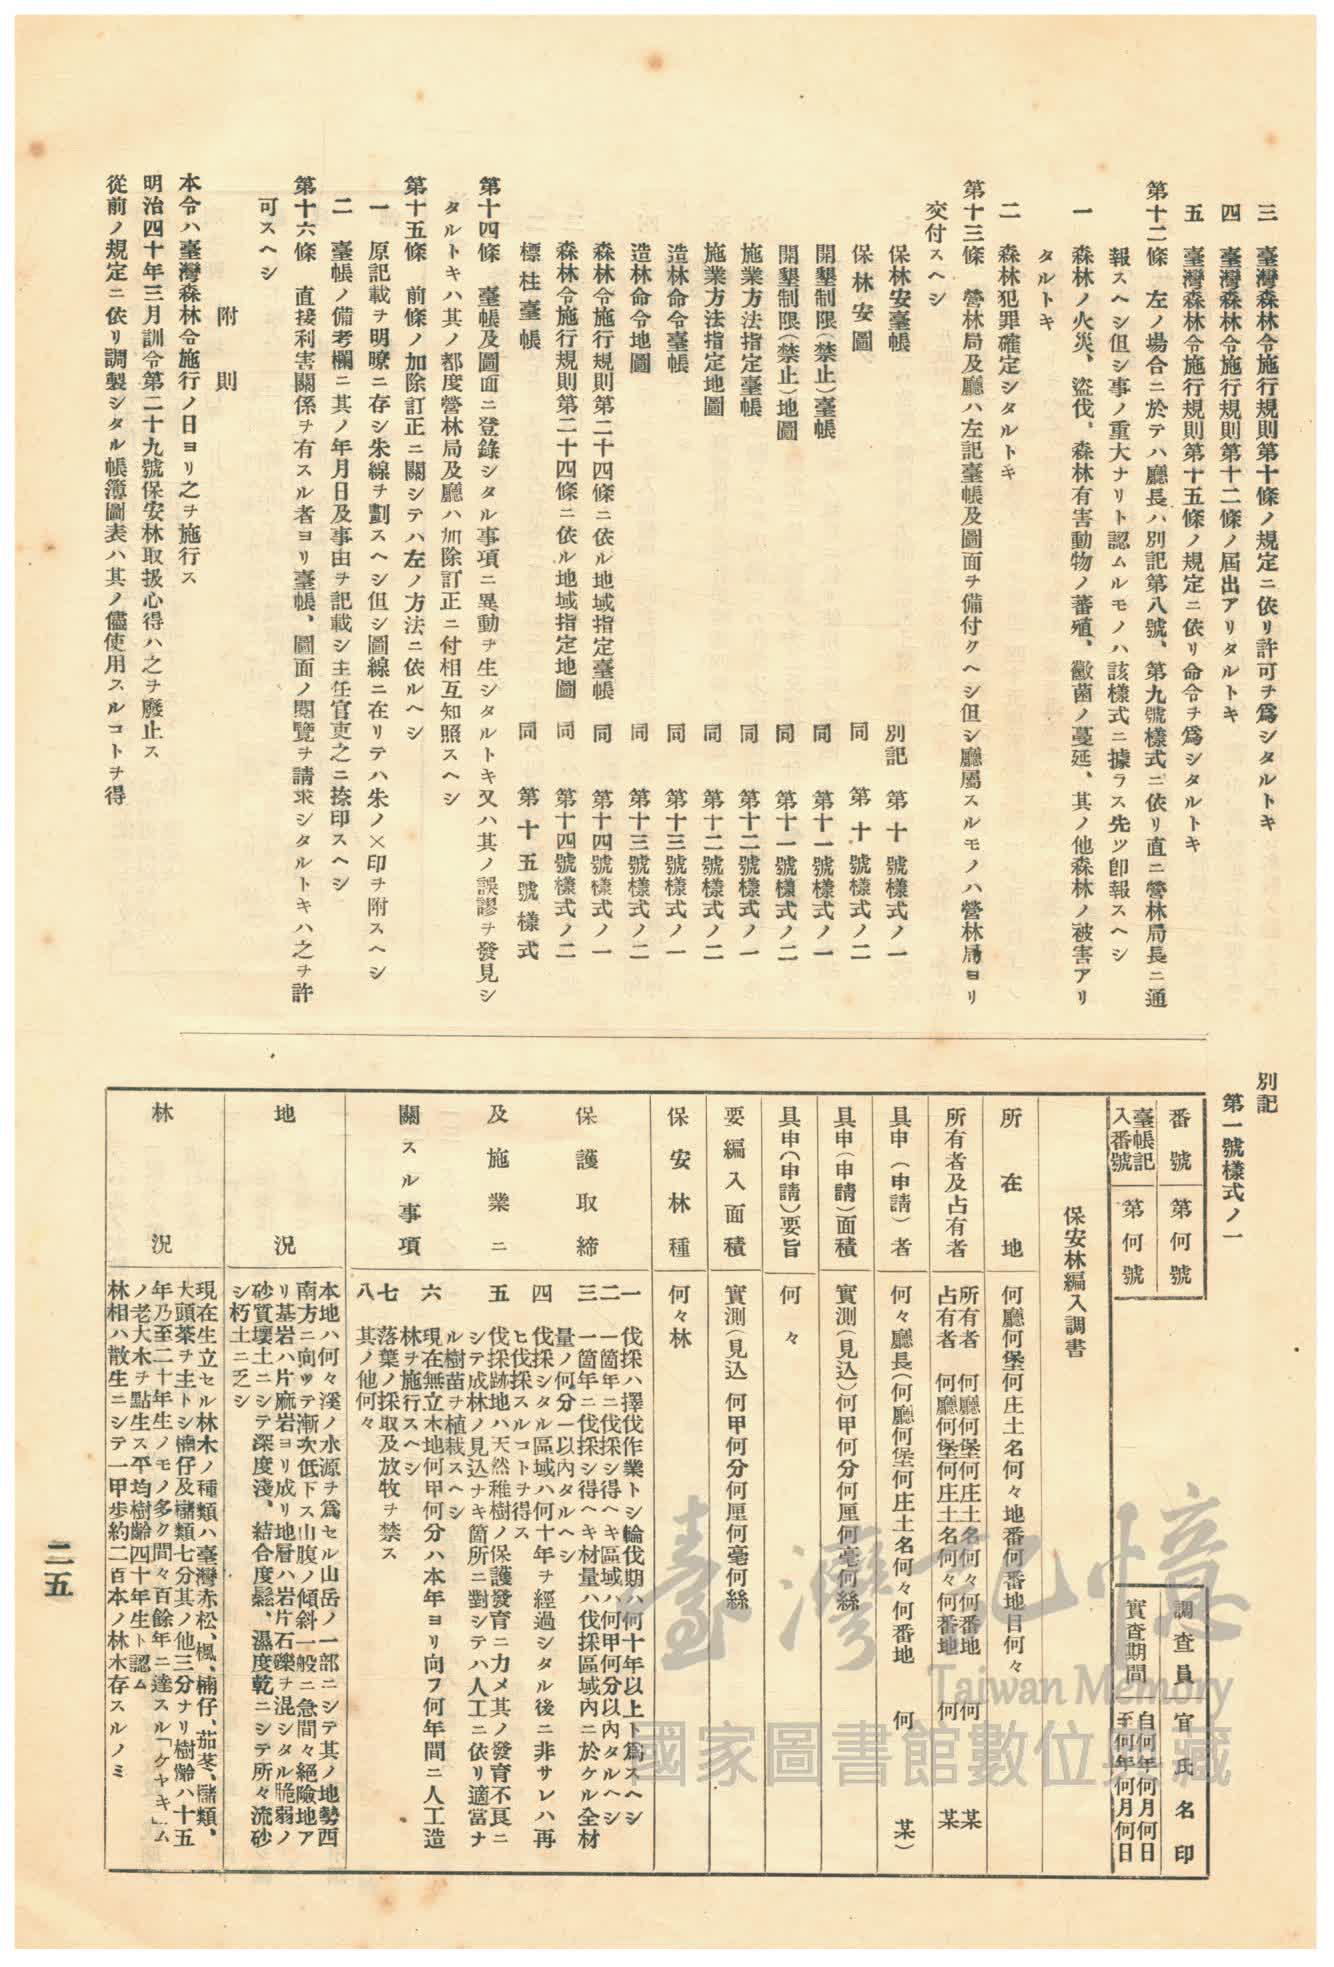 三　臺灣森林令施行規則第十條ノ規定ニ依リ許可ヲ爲シタルトキ
四　臺灣森林令施行規則第十二條ノ屆出アリタルトキ
五　臺灣森林令施行規則第十五條ノ規定ニ依リ命令ヲ爲シタルトキ
第十二條　左ノ場合ニ於テハ廳長ハ別記第八號、第九號樣式ニ依リ直ニ營林局長ニ通
報スヘシ但シ事ノ重大ナリト認ムルモノハ該樣式ニ據ラス先ツ卽報スヘシ
一　森林ノ火災、盜伐、森林有害動物ノ蕃殖、黴菌ノ蔓延、其ノ他森林ノ被害アリ
タルトキ
二　森林犯罪確定シタルトキ
第十三條　營林局及廳ハ左記臺帳及圖面ヲ備付クヘシ但シ廳屬スルモノハ營林局ヨリ
交付スヘシ
保林安臺帳　別記　第十號樣式ノ一
保林安圖　同　第十號樣式ノ二
開墾制限（禁止）臺帳　同　第十一號樣式ノ一
開墾制限（禁止）地圖　同　第十一號樣式ノ二
施業方法指定臺帳　同　第十二號樣式ノ一
施業方法指定地圖　同　第十二號樣式ノ二
造林命令臺帳　同　第十三號樣式ノ一
造林命令地圖　同　第十三號樣式ノ二
森林令施行規則第二十四條ニ依ル地域指定臺帳　同　第十四號樣式ノ一
森林令施行規則第二十四條ニ依ル地域指定地圖　同　第十四號樣式ノ二
標柱臺帳　同　第十五號樣式
第十四條　臺帳及圖面ニ登錄シタル事項ニ異動ヲ生シタルトキ又ハ其ノ誤謬ヲ發見シ
タルトキハ其ノ都度營林局及廳ハ加除訂正ニ付相互知照スヘシ
第十五條　前條ノ加除訂正ニ關シテハ左ノ方法ニ依ルヘシ
一　原記載ヲ明瞭ニ存シ朱線ヲ劃スヘシ但シ圖線ニ在リテハ朱ノ×印ヲ附スヘシ
二　臺帳ノ備考欄ニ其ノ年月日及事由ヲ記載シ主任官吏之ニ捺印スヘシ
第十六條　直接利害關係ヲ有スル者ヨリ臺帳、圖面ノ閱覽ヲ請求シタルトキハ之ヲ許
可スヘシ
附則
本令ハ臺灣森林令施行ノ日ヨリ之ヲ施行ス
明治四十年三月訓令第二十九號保安林取扱心得ハ之ヲ廢止ス
從前ノ規定ニ依リ調製シタル帳簿圖表ハ其ノ儘使用スルコトヲ得
別記
第一號樣式ノ一
番號　第何號
臺帳記入番號　第何號
調査員　官氏名印
實査期間　自何年何月何日
至何年何月何日
保安林編入調書
所在地　何廳何堡何庄土名何々地番何番地目何々
所有者及占有者　所有者　何廳何堡何庄土名何々何番地　何某
占有者　何廳何堡何庄土名何々何番地　何某
具申（申請）者　何々廳長（何廳何堡何庄土名何々何番地　何某）
具申（申請）面積　實測（見込）何甲何分何厘何毫何絲
具申（申請）要旨　何々
要編入面積　實測（見込）何甲何分何厘何毫何絲
保安林種　何々林
保護取締
及施業ニ
關スル事項
一　伐採ハ擇伐作業トシ輪伐期ハ何十年以上ト爲スヘシ
二　一箇年ニ伐採シ得ヘキ區域ハ何甲何分以內タルヘシ
三　一箇年ニ伐採シ得ヘキ材量ハ伐採區域內ニ於ケル全材
量ノ何分ノ一以內タルヘシ
四　伐採シタル區域ハ何十年ヲ經過シタル後ニ非サレハ再
ヒ伐採スルコトヲ得ス
五　伐採跡地ハ天然稚樹ノ保護發育ニ力メ其ノ發育不良ニ
シテ成林ノ見込ナキ箇所ニ對シテハ人工ニ依リ適當ナ
ル樹苗ヲ植栽スヘシ
六　現在無立木地何甲何分ハ本年ヨリ向フ何年間ニ人工造
林ヲ施行スヘシ
七　落葉ノ採取及放牧ヲ禁ス
八　其ノ他何々
地況
本地ハ何々溪ノ水源ヲ爲セル山岳ノ一部ニシテ其ノ地勢西
南方ニ向ツテ漸次低下ス山腹ノ傾斜一般ニ急間々絕險地ア
リ基岩ハ片麻岩ヨリ成リ地層ハ岩片石礫ヲ混シタル脆弱ノ
砂質壤土ニシテ深度淺、結合度鬆、濕度乾ニシテ所々流砂
シ朽土ニ乏シ
林況
現在生立セル林木ノ種類ハ臺灣赤松、楓、楠仔、茄苳、櫧類、
大頭茶ヲ主トシ楠仔及櫧類七分其ノ他三分ナリ樹齡ハ十五
年乃至二十年生ノモノ多ク間々百餘年ニ達スル「ケヤキ」ム
ノ老大木ヲ點生ス平均樹齡四十年生ト認ム
林相ハ散生ニシテ一甲步約二百本ノ林木存スルノミ
二五
臺灣記憶
Taiwan Memory
國家圖書館數位典藏